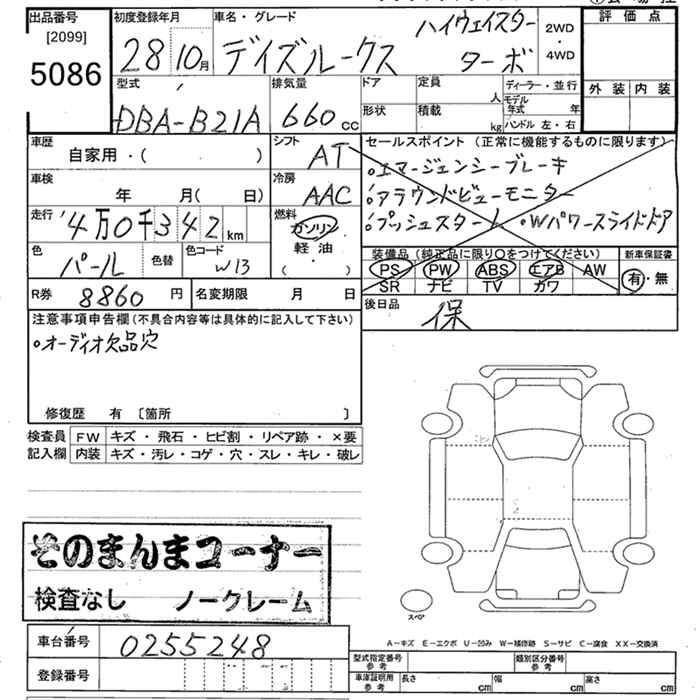 出品番号 初度登録年月 車名・グレード ハイウェイスター 2WD 評価点
[2099] 28 10月 デイズルークス ターボ ・4WD
5086 型式 排気量 ドア 定員 ディーラー・並行 外装 内装
人 モデル年式 年
DBA-B21A 660cc 形状 積載 kg ハンドル 左・右
車歴 シフト セールスポイント(正常に機能するものに限ります)
自家用・( ) AT ・エマージェンシーブレーキ
車検 冷房 ・アラウンドビューモニター
年 月( 日) AAC ・プッシュスタート ・Wパワースライドドア
走行 '4万0千342km 燃料 ガソリン
軽油・
( )
色 パール 色替 色コード W13 装備品(純正品に限り○をつけてください) 新車保証書
PS PW ABS エアB AW 有・無
SR ナビ TV カワ
R券 8860円 名変期限 月 日 後日品 保
注意事項申告欄(不具合内容等は具体的に記入して下さい)
・オーディオ欠品穴
修復歴 有 〔箇所 〕
検査員 FW キズ・飛石・ヒビ割・リペア跡・×要
記入欄 内装 キズ・汚レ・コゲ・穴・スレ・キレ・破レ
そのまんまコーナー
検査なし ノークレーム
スペア
A－キズ E－エクボ U－凹み W－補修跡 S－サビ C－腐食 XX－交換済
車台番号 0255248 型式指定番号 参考 類別区分番号 参考
登録番号 車庫証明用 参考 長さ cm 幅 cm 高さ cm